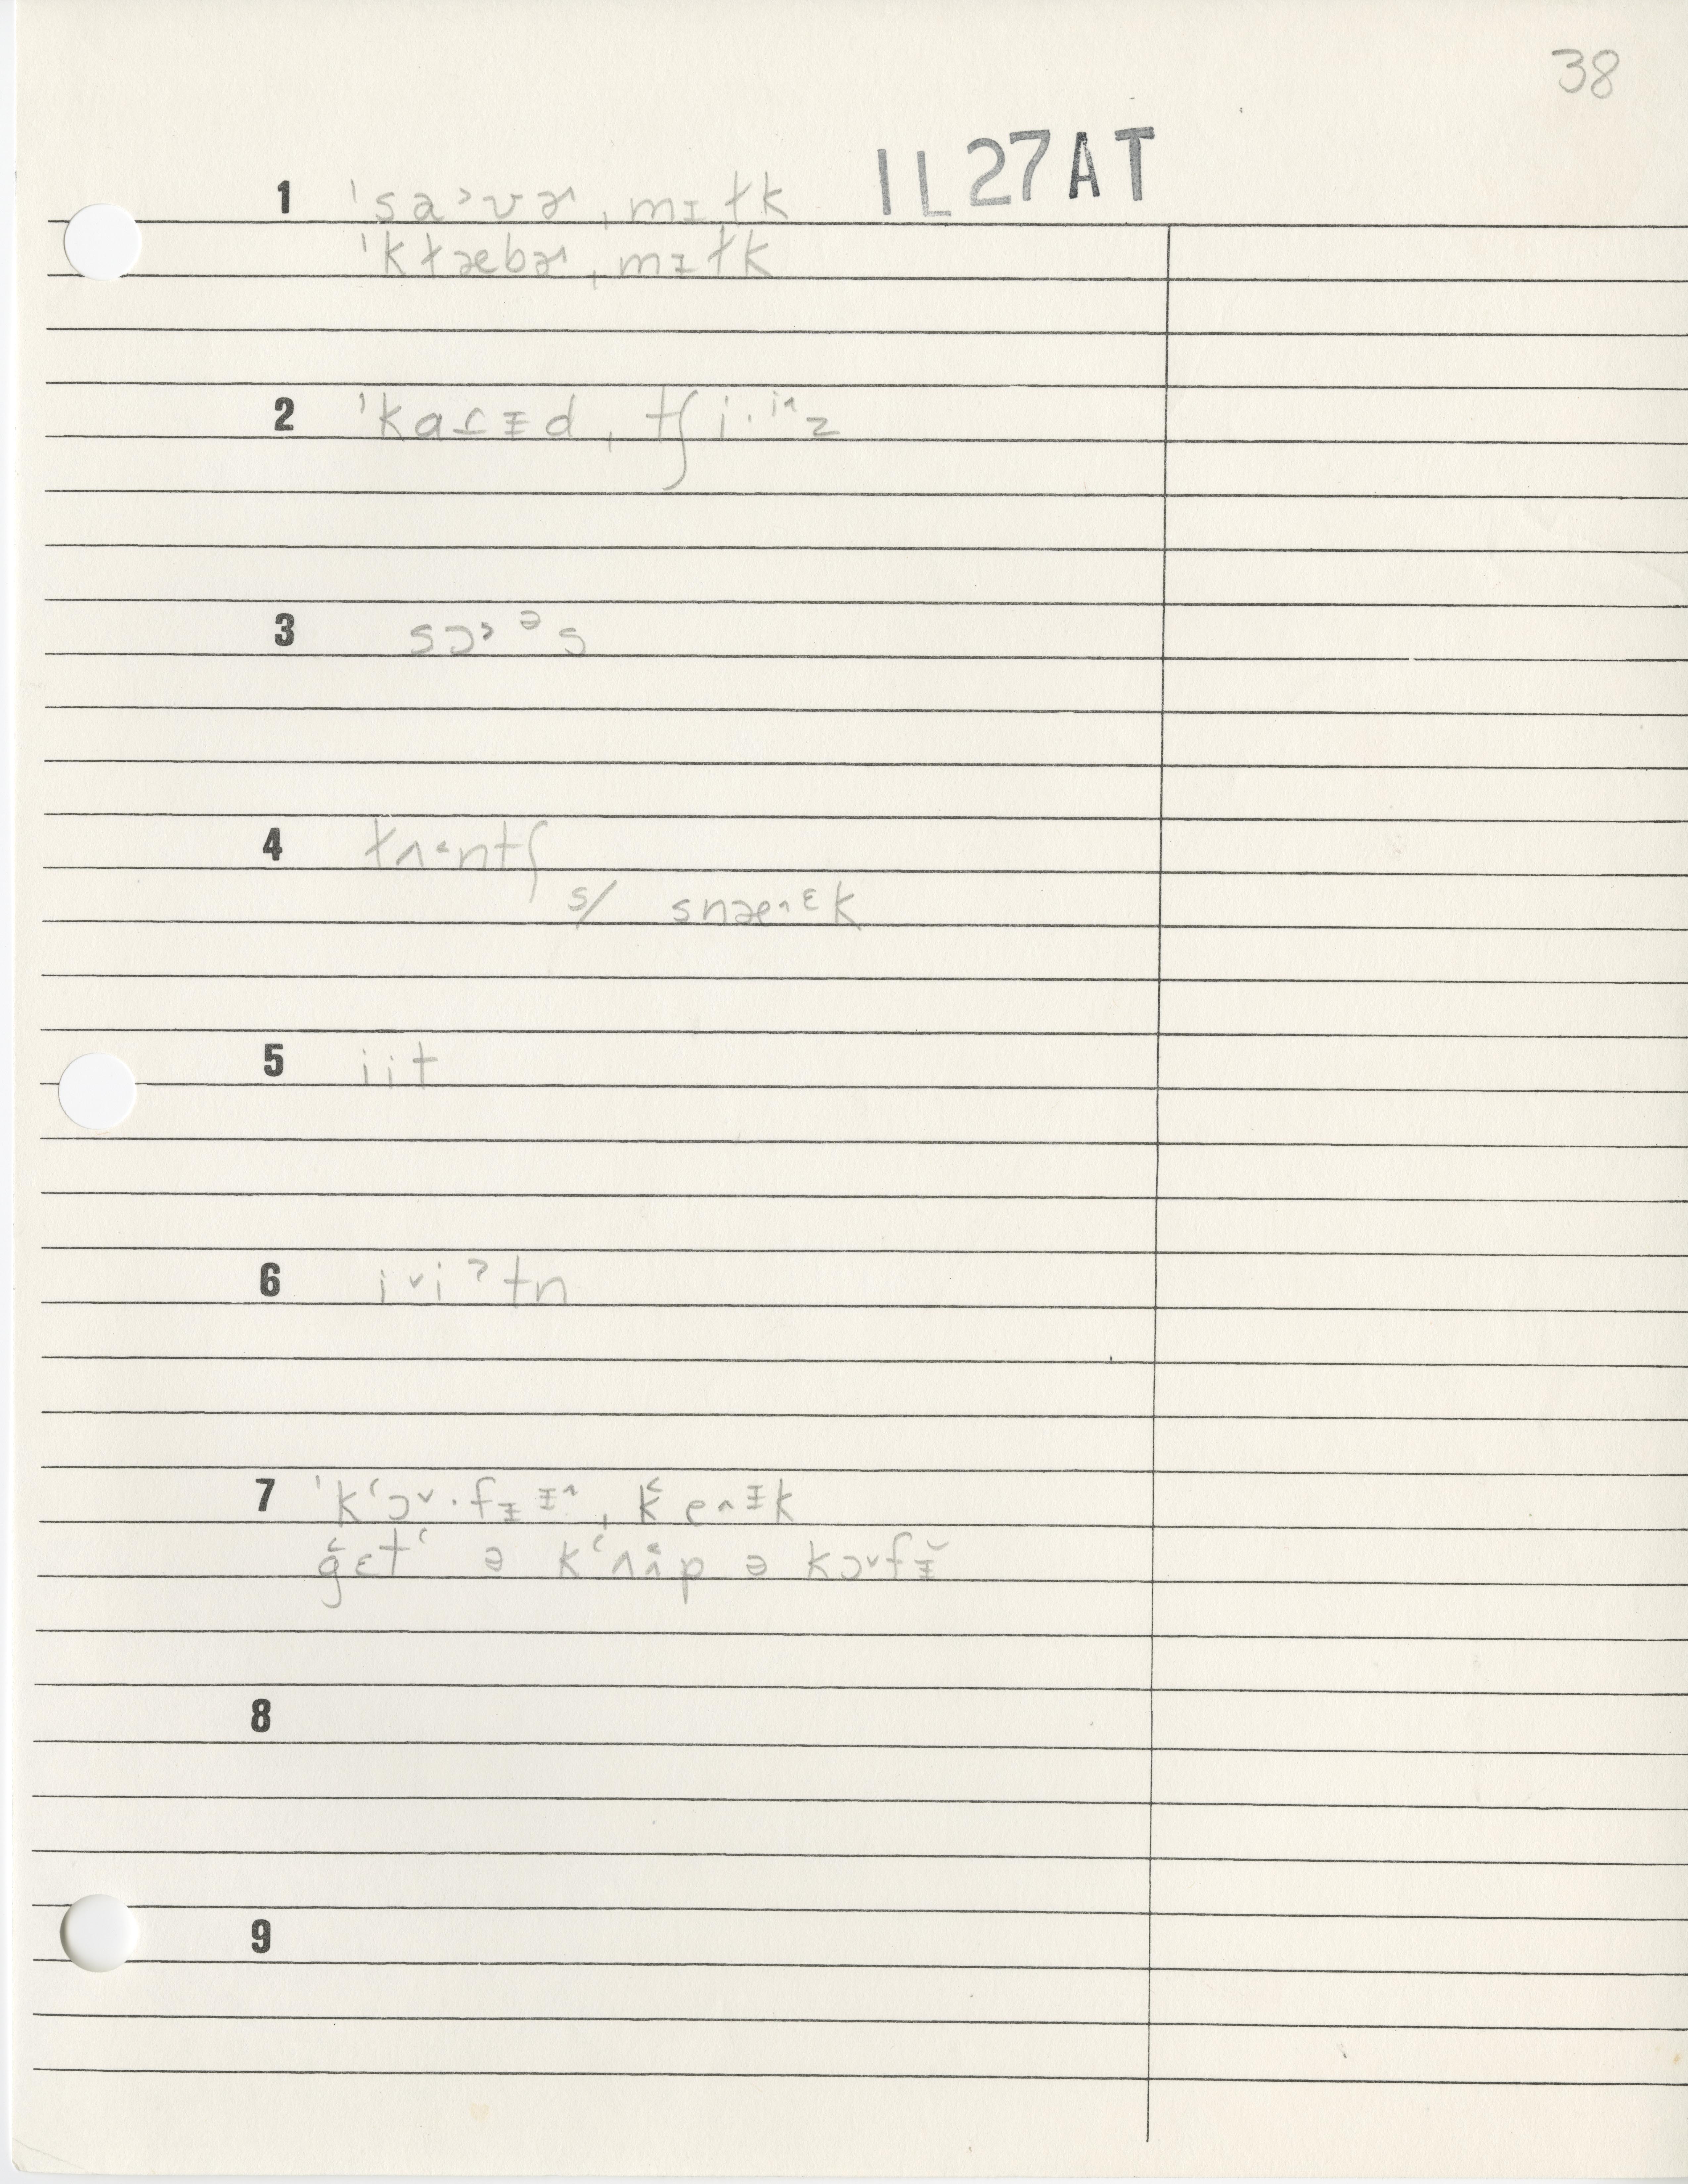 38
IL27AT
1 ˈsa˃ʊɚ ˌmɪɫk
ˈkɫæbɚ ˌmɪɫk
2 ˈkaɾɪ̵d ˌtʃi·i^z
3 sɔ˃ᵊs
4 ɫʌ˂ntʃ
s/ snæ^ᵋk
5 iit
6 i˅iˀtn
7 ˈkʻɔ˅·fɪ̵ɪ̵^ ˌkʻe^ɪ̵k
gɛtʻ ə kʻʌʌ̂p ə kɔ˅fɪ̵̆
8
9